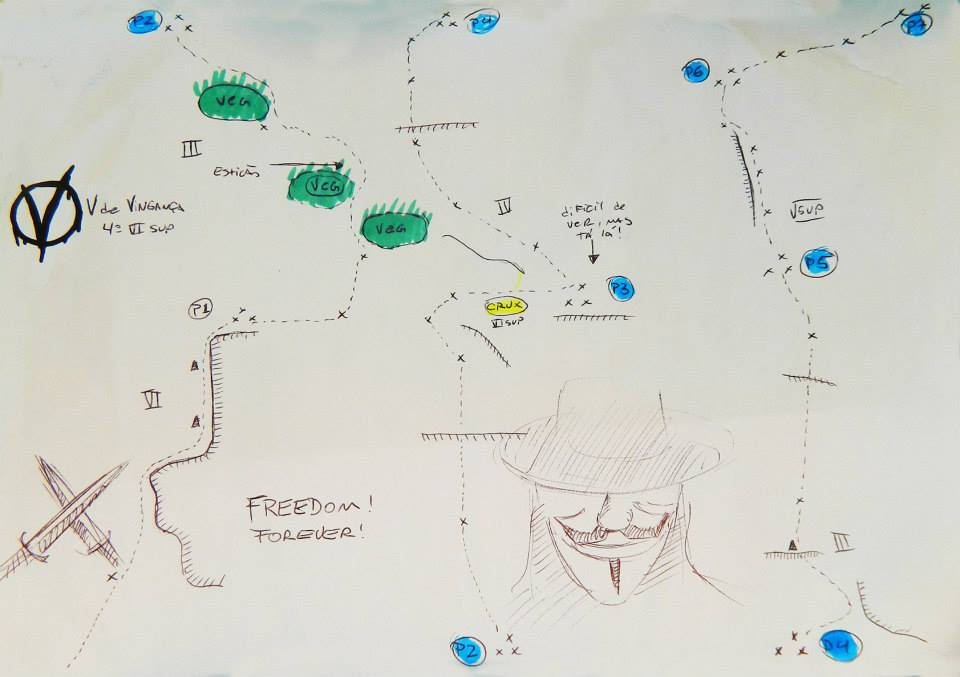 P2
P4
P7
P6
VEG
III
ESTICÃO
VEG
V
V de VINGANÇA
4º VI SUP
VEG
IV
DIFICIL DE
VER, MAS
TÁ LÁ!
V SUP
P5
P3
P1
CRUX
VI SUP
VI
FREEDOM!
FOREVER!
III
P2
P4